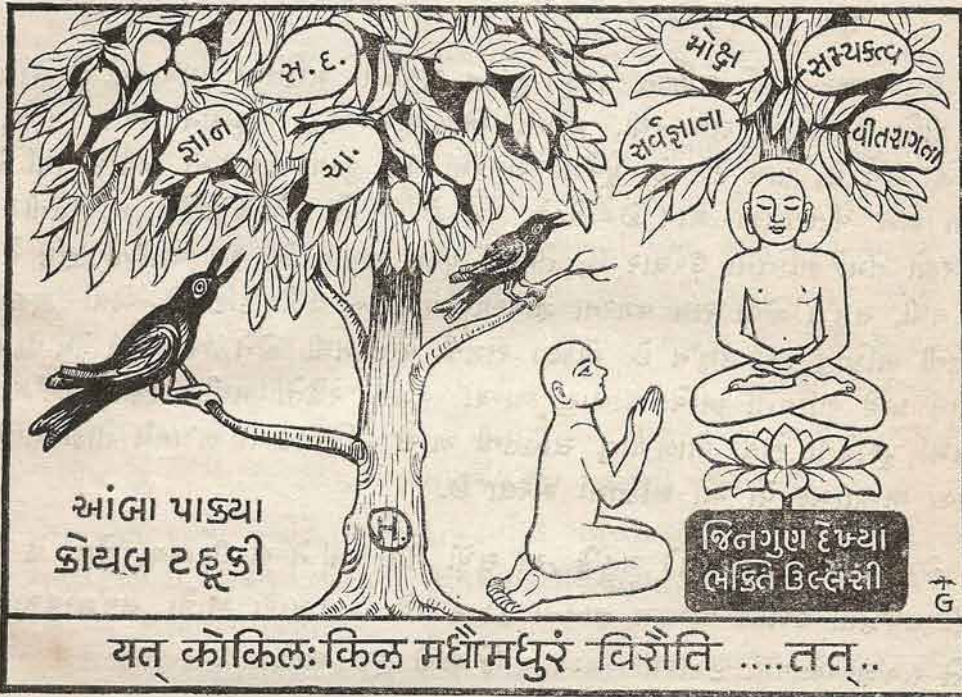 સ. દ.
જ્ઞાન
ચા.
મોક્ષ
સમ્યકત્વ
સર્વજ્ઞતા
વીતરાગતા
આંબા પાક્યા
કોયલ ટહૂકી
જિનગુણ દેખ્યા
ભક્તિ ઉલ્લસી
G
यत् कोकिलः किल मधौमधुरं विरौति ....तत्..